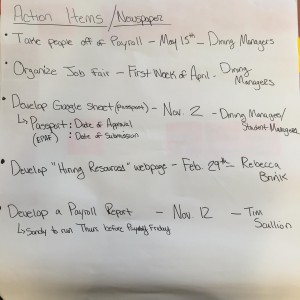 Action Items/Newspaper
• Take people off of Payroll - May 15th - Dining Managers
• Organize Job Fair - First Week of April - Dining
Managers
• Develop Google Sheet (Passport) - Nov. 2 - Dining Managers/
Student Managers
↳ Passport: Date of Approval
(EPAF) : Date of Submission
• Develop "Hiring Resources" webpage - Feb. 29th - Rebecca
Brink
• Develop a Payroll Report - Nov. 12 - Tim
Scullion
↳ Sandy to run Thurs before Payday Friday